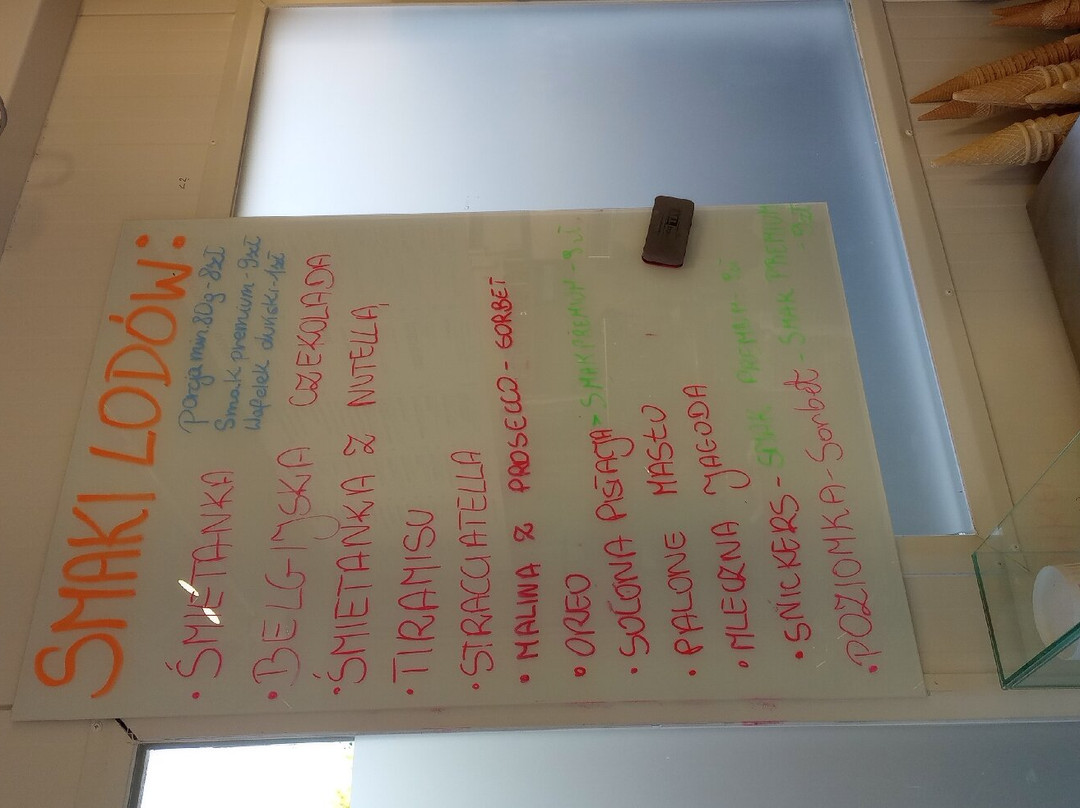 SMAKI LODÓW:
Porcja min. 80g - 8zł
Smak premium - 9zł
Wafelek duński - 1zł
• ŚMIETANKA
• BELGIJSKA CZEKOLADA
• ŚMIETANKA Z NUTELLĄ
• TIRAMISU
• STRACCIATELLA
• MALINA Z PROSECCO - SORBET
• OREO
• SOLONA PISTACJA - SMAK PREMIUM - 9zł
• PALONE MASŁO
• MLECZNA JAGODA
• SNICKERS - SMAK PREMIUM - 9zł
• POZIOMKA - Sorbet - SMAK PREMIUM - 9zł